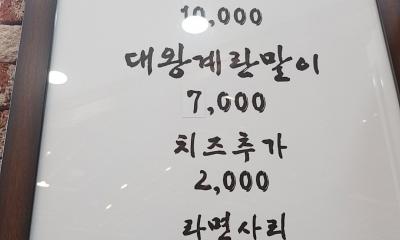 10,000
대왕계란말이
7,000
치즈추가
2,000
라면사리